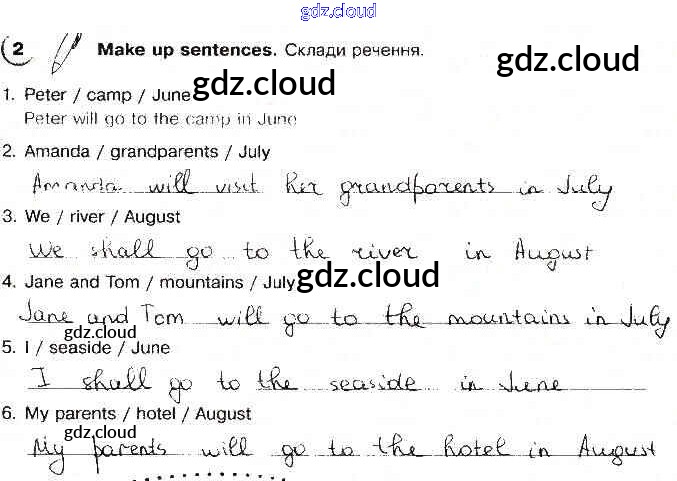 gdz.cloud
2 Make up sentences. Склади речення.
gdz.cloud
1. Peter / camp / June gdz.cloud
Peter will go to the camp in June
2. Amanda / grandparents / July
Amanda will visit her grandparents in July
3. We / river / August
We shall go to the river in August
4. Jane and Tom / mountains / July gdz.cloud
Jane and Tom will go to the mountains in July
gdz.cloud
5. I / seaside / June
I shall go to the seaside in June
6. My parents / hotel / August
gdz.cloud
My parents will go to the hotel in August